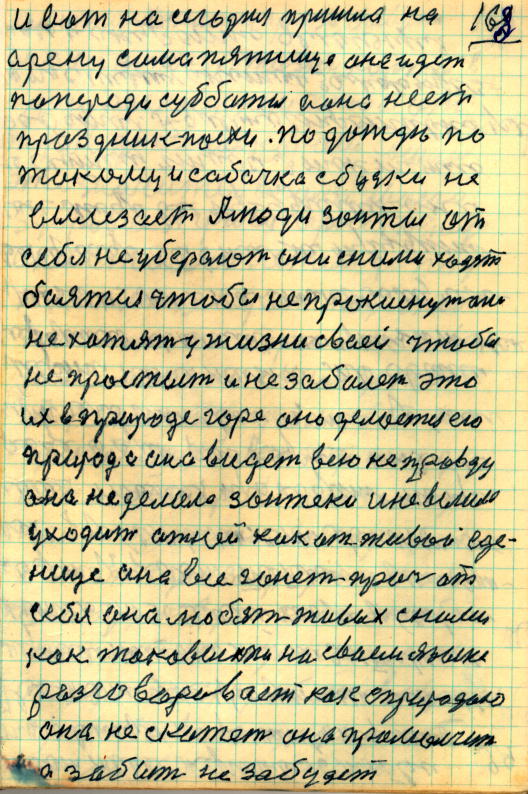 и вот на сегодня пришла на 168
арену сама пятница она идет
попереди субботы она несет
праздник пасхи. по дождь по
такому и сабачка с будки не
вылезает А люди зонты от
себя не уберают они сними ходят
баятся чтобы не промокнут они
не хотят у жизни своей чтобы
не простыт и не забалет это
их в природе горе оно делается его
природа она видет всю не правду
она не делала зонтеки и не велела
уходит от ней как от живой еде-
нице она вые гонет проч от
себя она любят живых с ними
как таковыми на своем языке
разговаревает как с природою
она не скажет она промолчит
а забыт не забудет